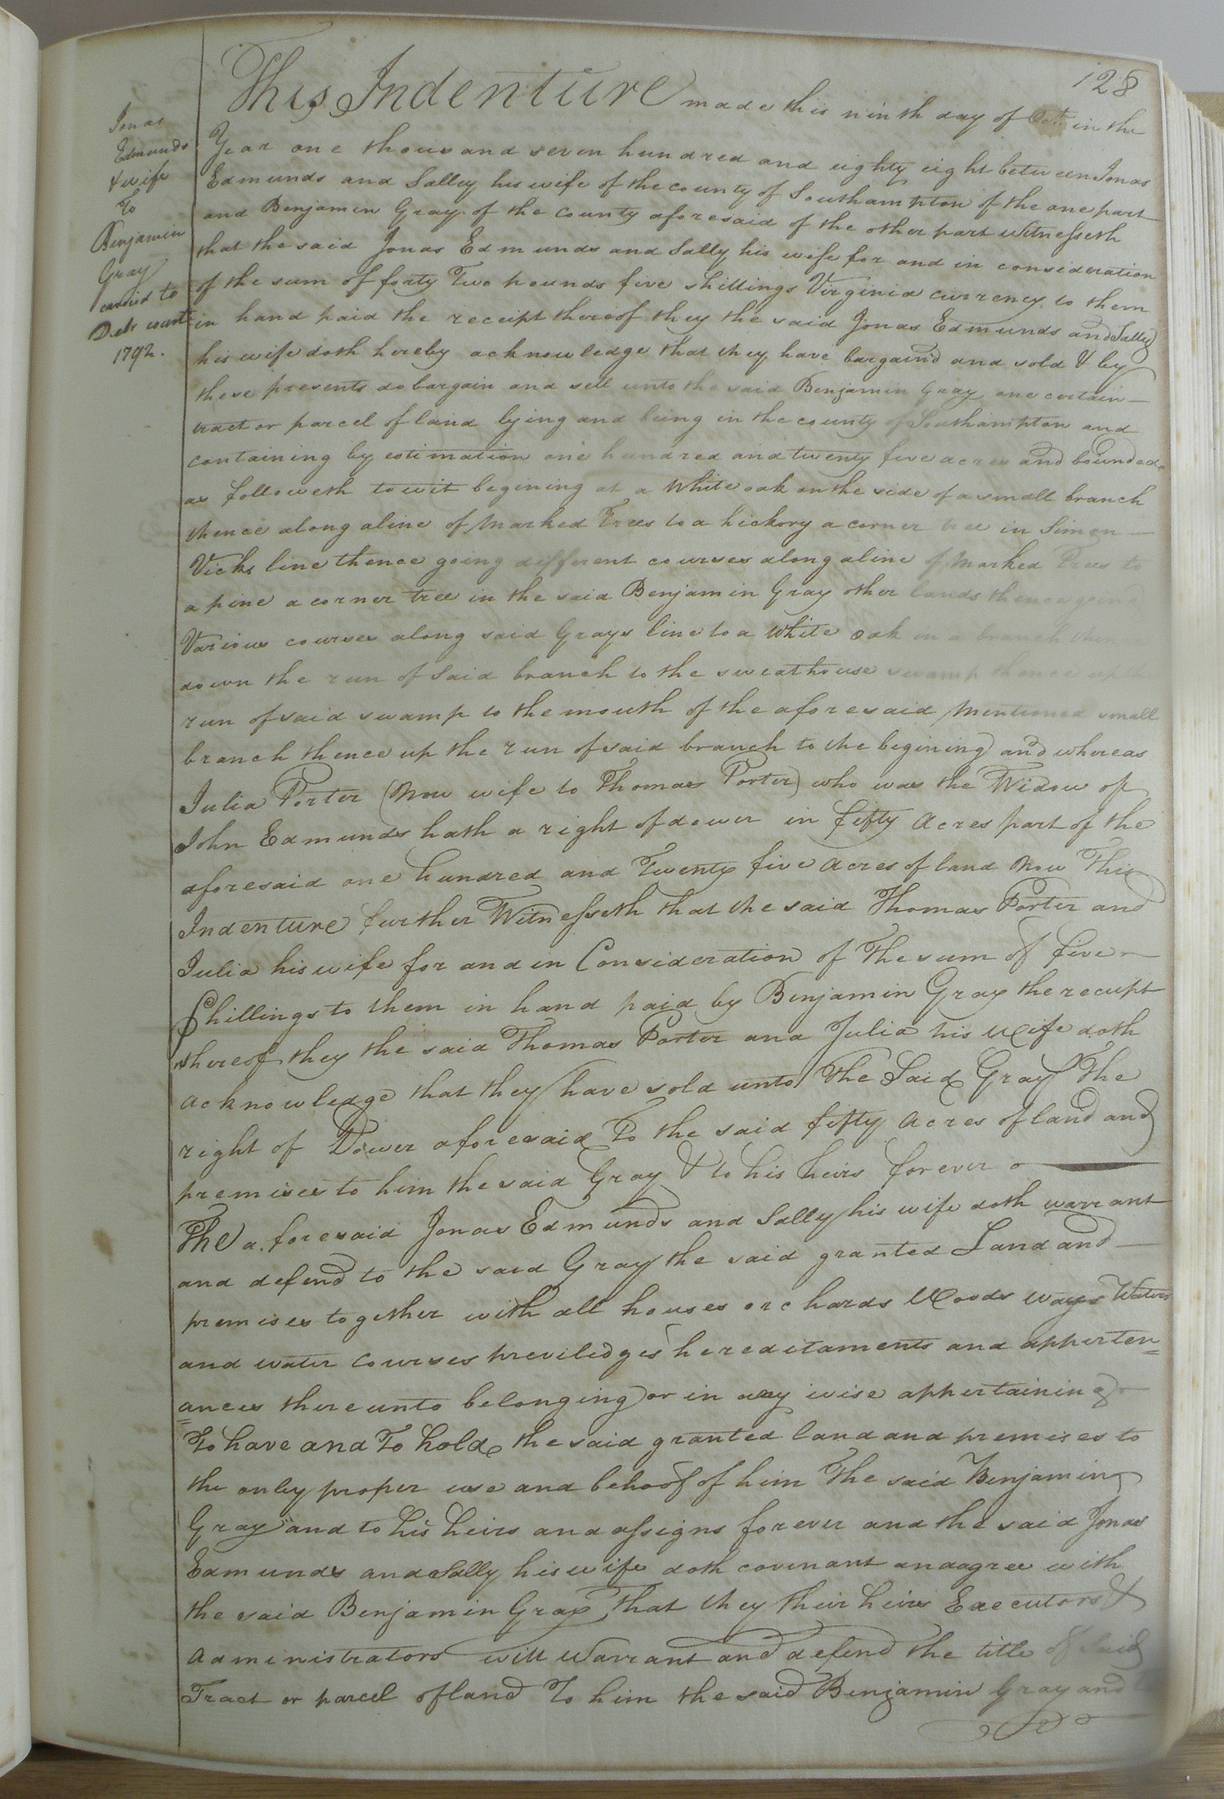 128
Jonas
Edmunds
& wife
To
Benjamin
Gray
Delr court
1792.
This Indenture made this ninth day of Octr in the
Year one thousand seven hundred and eighty eight between Jonas
Edmunds and Salley his wife of the county of Southampton of the one part
and Benjamin Gray of the county aforesaid of the other part witnesseth
that the said Jonas Edmunds and Sally his wife for and in consideration
of the sum of forty Two pounds five shillings Virginia currency to them
in hand paid the receipt thereof they the said Jonas Edmunds and Sally
his wife doth hereby acknowledge that they have bargain'd and sold & by
these presents do bargain and sell unto the said Benjamin Gray one certain
tract or parcel of land lying and being in the county of Southampton and
containing by estimation one hundred and twenty five acres and bounded
as followeth towit begining at a White oak on the side of a small branch
thence along a line of Marked Trees to a hickory a corner tree in Simon
Vicks line thence going different courses along a line of Marked Trees to
a pine a corner tree in the said Benjamin Gray other lands thence going
Various courses along said Grays line to a White oak in a branch thence
down the run of said branch to the sweathouse swamp thence up the
run of said swamp to the mouth of the aforesaid Mentioned small
branch thence up the run of said branch to the begining and whereas
Julia Porter (Now wife to Thomas Porter) who was the Widow of
John Edmunds hath a right of dower in fifty Acres part of the
aforesaid one hundred and Twenty five Acres of land Now This
Indenture further Witnesseth that the said Thomas Porter and
Julia his wife for and in Consideration of The sum of five
Shillings to them in hand paid by Benjamin Gray the receipt
thereof they the said Thomas Porter and Julia his Wife doth
acknowledge that they have sold unto The Said Gray The
right of Dower aforesaid To the said fifty Acres of land and
premises to him the said Gray & to his heirs forever
The aforesaid Jonas Edmunds and Sally his wife doth warrant
and defend to the said Gray the said granted Land and
premises together with all houses orchards Woods ways Waters
and water courses previledges hereditaments and apperten=
=ances thereunto belonging or in any wise appertaining
To have and To hold the said granted land and premises to
the only proper use and behoof of him The said Benjamin
Gray and to his heirs and assigns forever and the said Jonas
Edmunds and Sally his wife doth covenant and agree with
the said Benjamin Gray That they their heirs Executors &
Administrators will Warrant and defend the title of said
Tract or parcel of land To him the said Benjamin Gray and